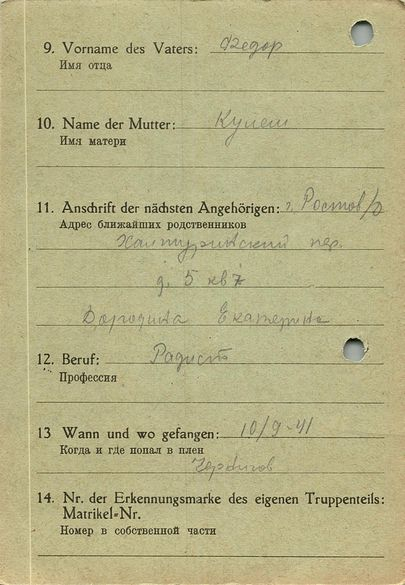 9. Vorname des Vaters: Федор
Имя отца
10. Name der Mutter: Кулеш
Имя матери
11. Anschrift der nächsten Angehörigen: г. Ростов/Д
Адрес ближайших родственников
Халтуринский пер.
д. 5 кв 7
Бородина Екатерина
12. Beruf: Радист
Профессия
13 Wann und wo gefangen: 10/9-41
Когда и где попал в плен
Чернигов
14. Nr. der Erkennungsmarke des eigenen Truppenteils:
Matrikel-Nr.
Номер в собственной части